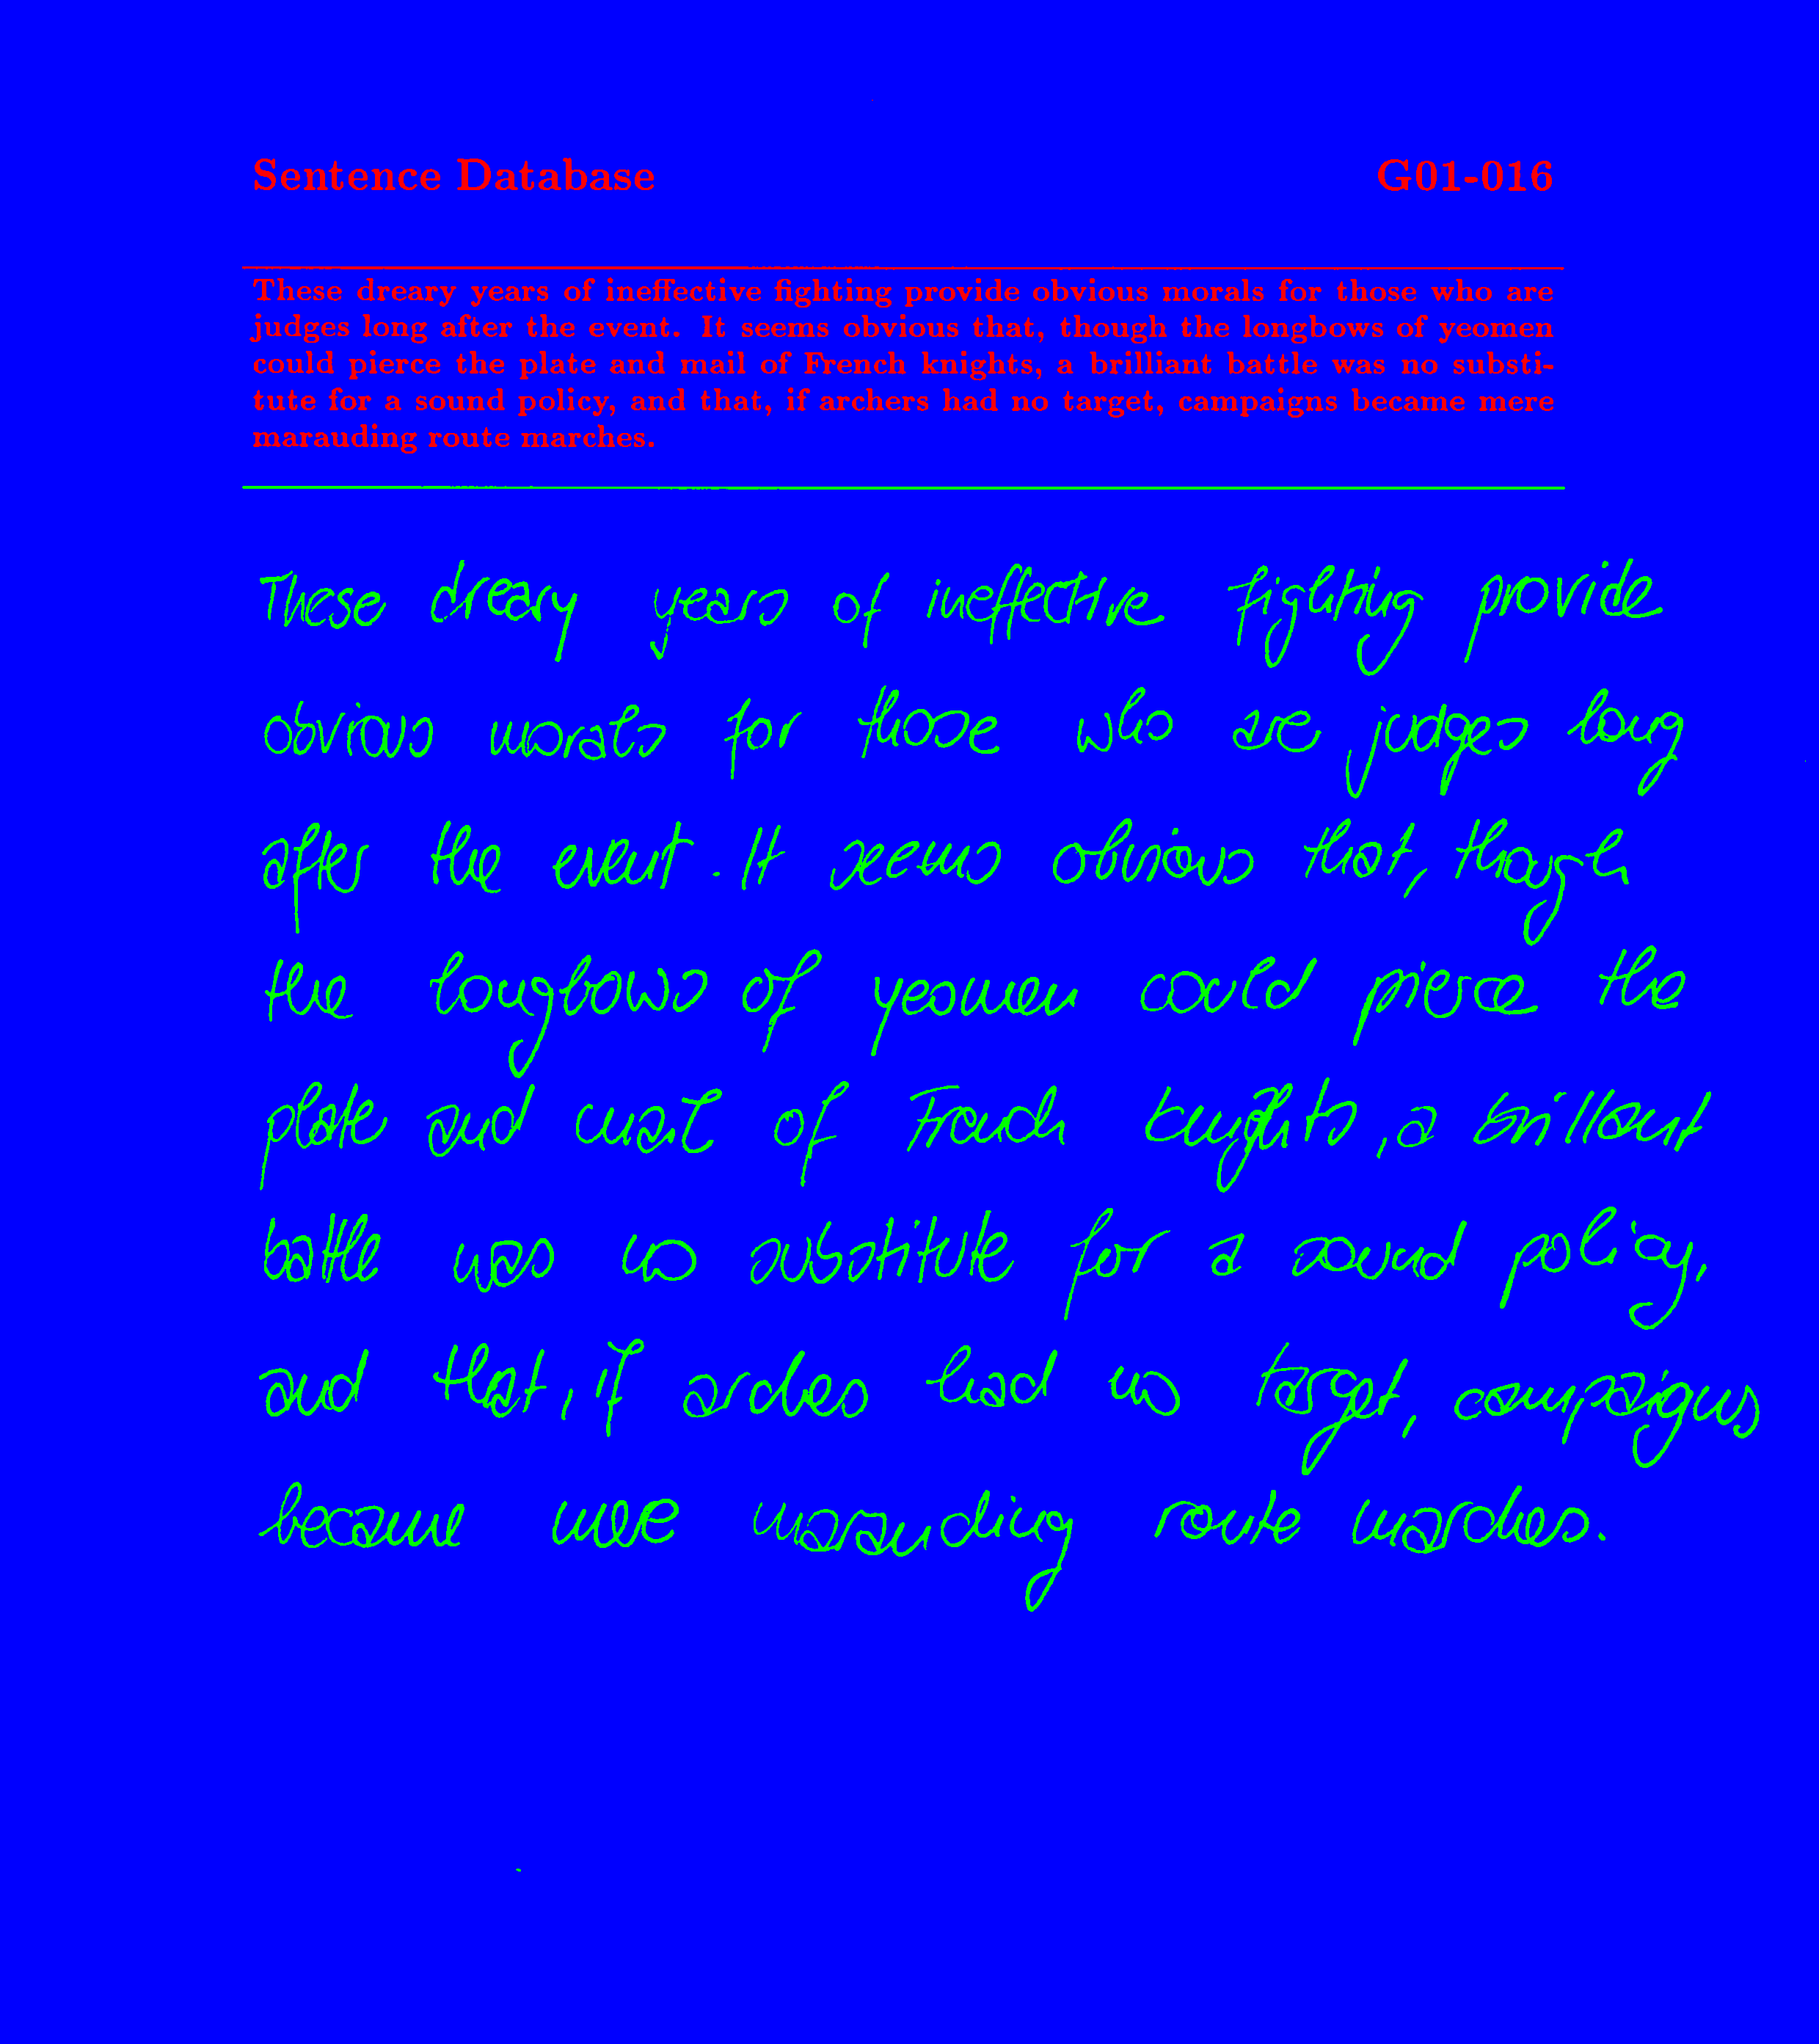 Sentence Database G01-016
These dreary years of ineffective fighting provide obvious morals for those who are
judges long after the event. It seems obvious that, though the longbows of yeomen
could pierce the plate and mail of French knights, a brilliant battle was no substi-
tute for a sound policy, and that, if archers had no target, campaigns became mere
marauding route marches.
These dreary years of ineffective fighting provide
obvious morals for those who are judges long
after the event. It seems obvious that, though
the longbows of yeomen could pierce the
plate and mail of French knights, a brilliant
battle was no substitute for a sound policy,
and that, if archers had no target, campaigns
became mere marauding route marches.